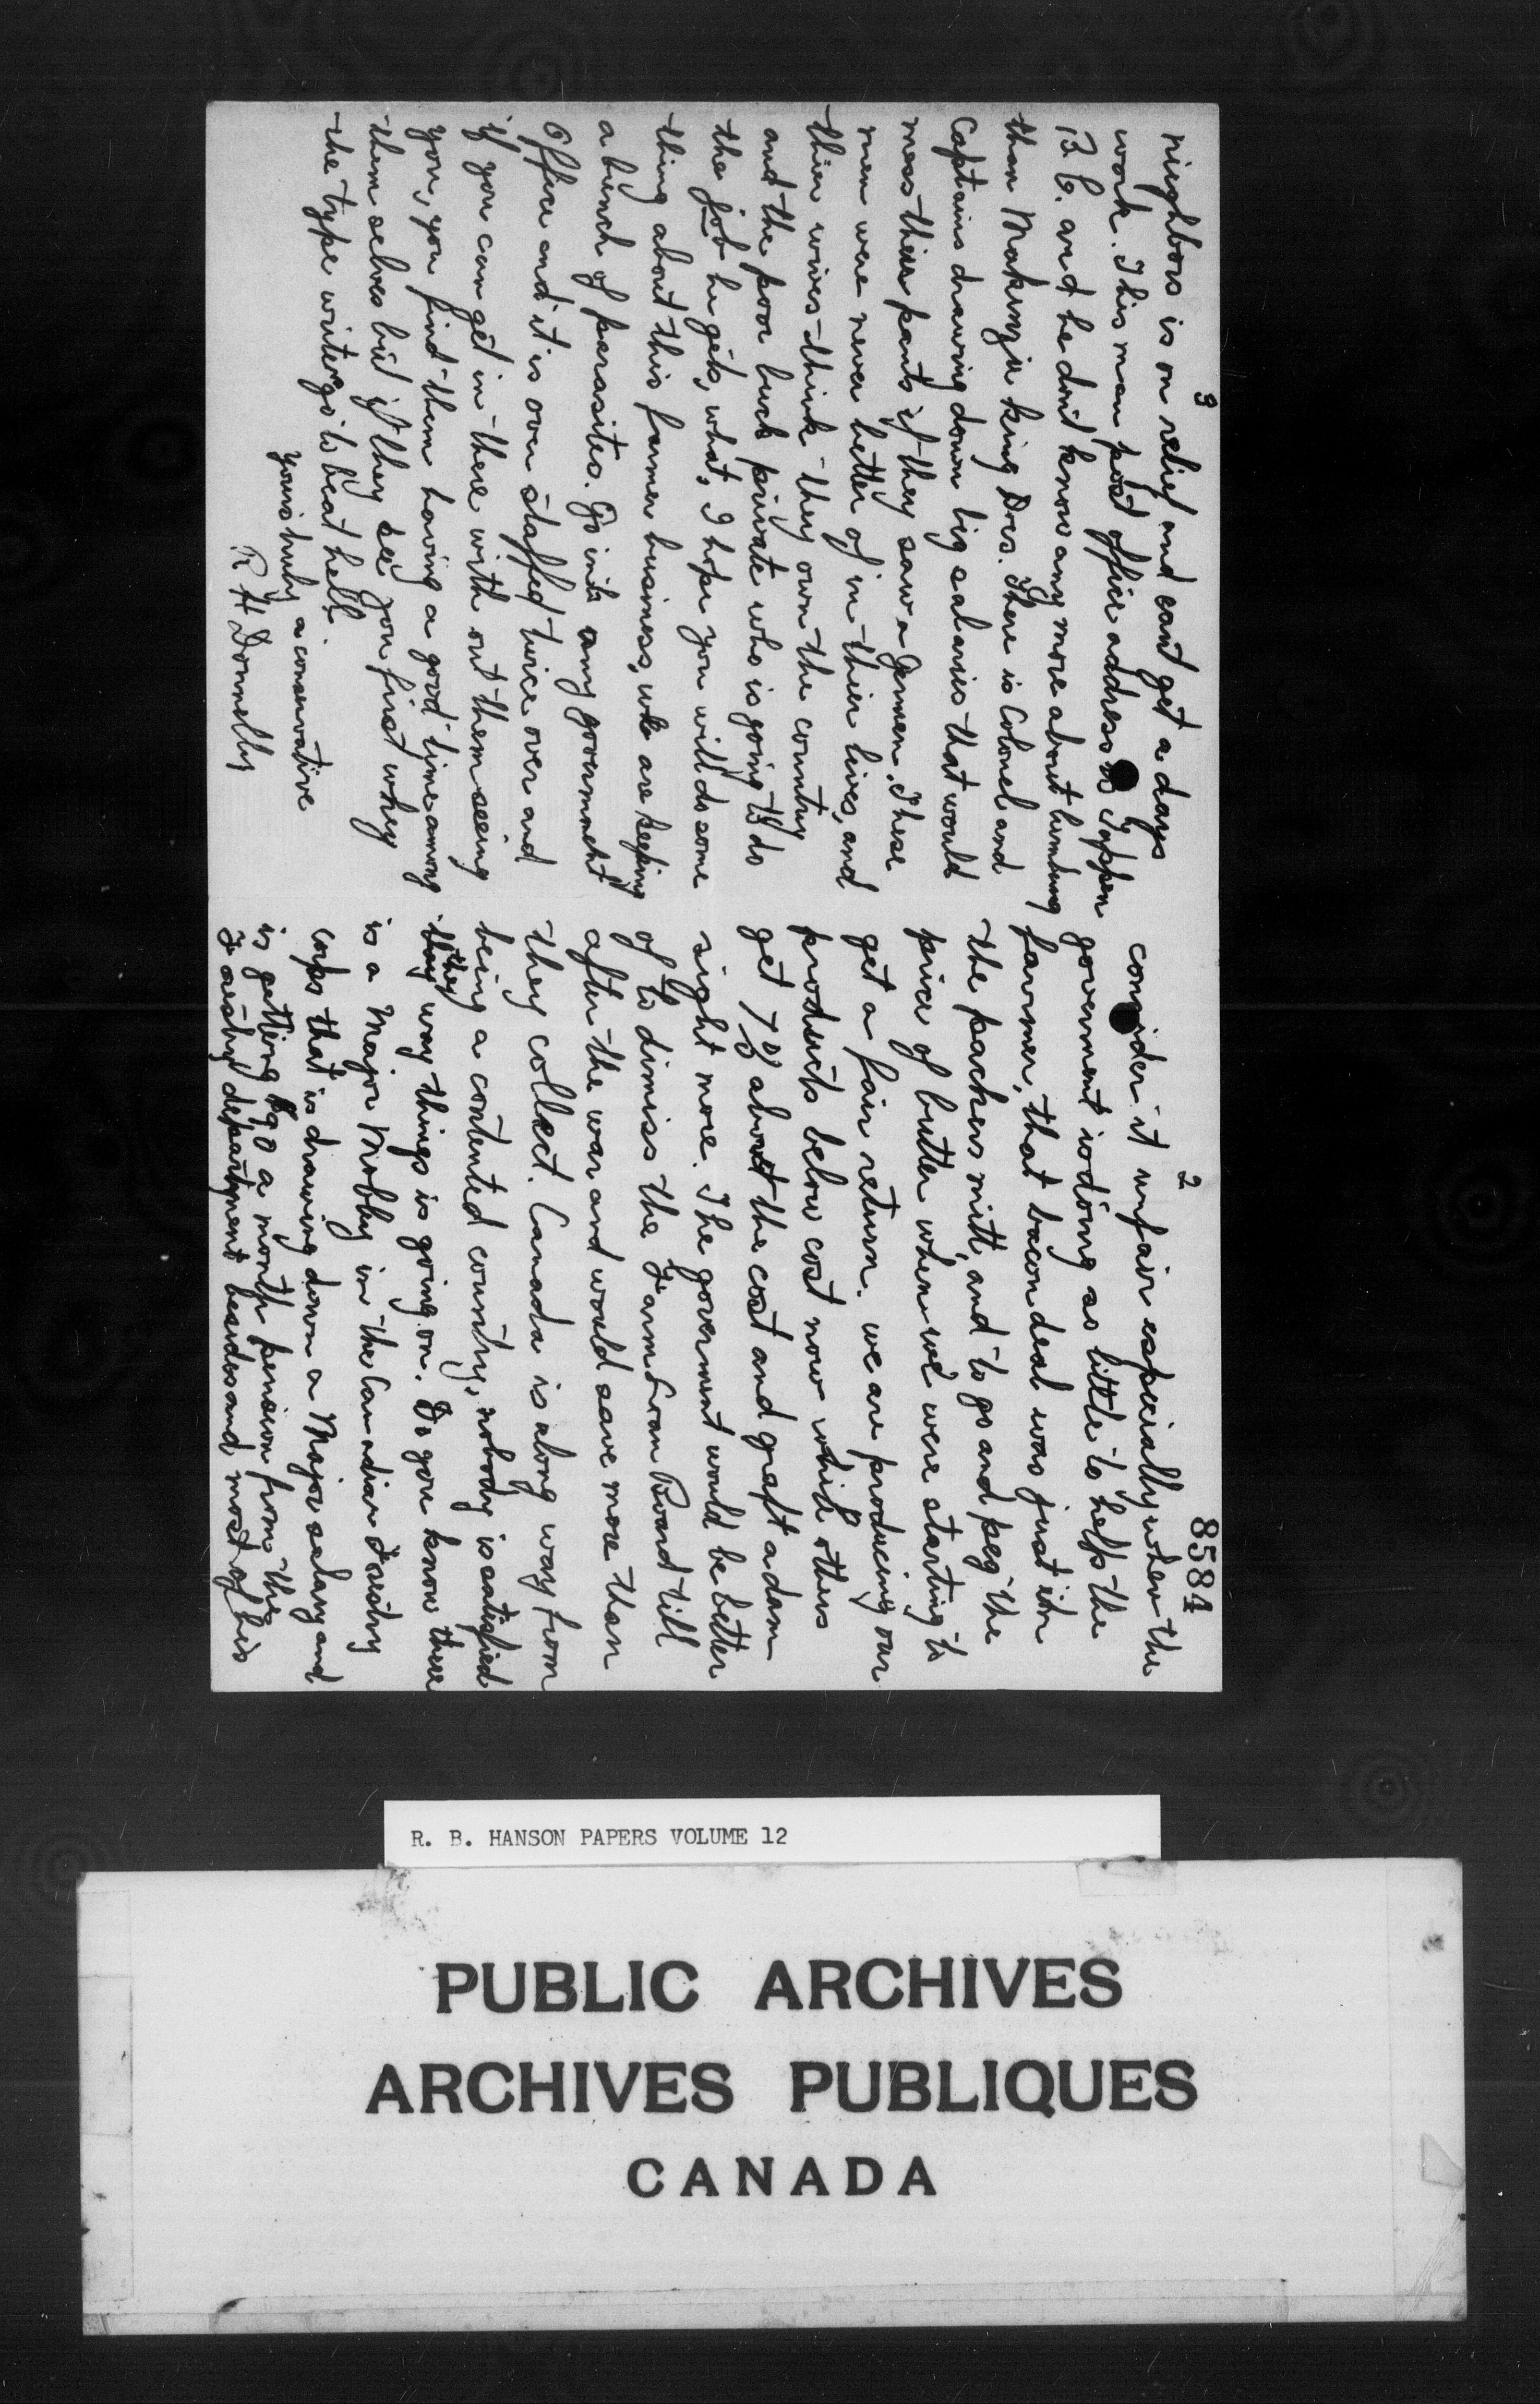 8584
2
consider it unfair especially when the
goverment is doing as little to help the
farmer, that bacon deal was just in
the packers mitt, and to go and peg the
price of butter when we, were starting to
get a fair return. we are producing our
products below cost now while others
get 7% above the cost and graft a dam
sight more. The goverment would be better
of to dimiss the Farm Loan Board till
after the war and would save more than
they collect. Canada is along way from
being a contented country, nobody is satisfied
the way things is going on. Do you know there
is a Major Mobbly in the Canadian Forestry
corps that is drawing down a Major salary and
is getting $90 a month pension from the
Forestry department besides and most of his
3
nieghbors is on relief and cant get a days
work. This man post office address is Tappen
B.C. and he don't know any more about lumbering
than Makenzie king Does. There is Colonel and
Captains drawing down big salaries that would
mess thier pants if they saw a German. These
men were never better of in thier lives, and
thier wives think they own the country
and the poor buck private who is going to do
the job he gets, what, I hope you will do some
thing about this farmer business, we are keeping
a bunch of parasites. Go into any goverment
Office and it is over staffed twice over and
if you can get in there with out them seeing
you, you find them having a good time among
them selves but if they see you first whey
the type writers go to beat hell.
yours truly a conservative
R H Donnelly
R. B. HANSON PAPERS VOLUME 12
PUBLIC ARCHIVES
ARCHIVES PUBLIQUES
CANADA